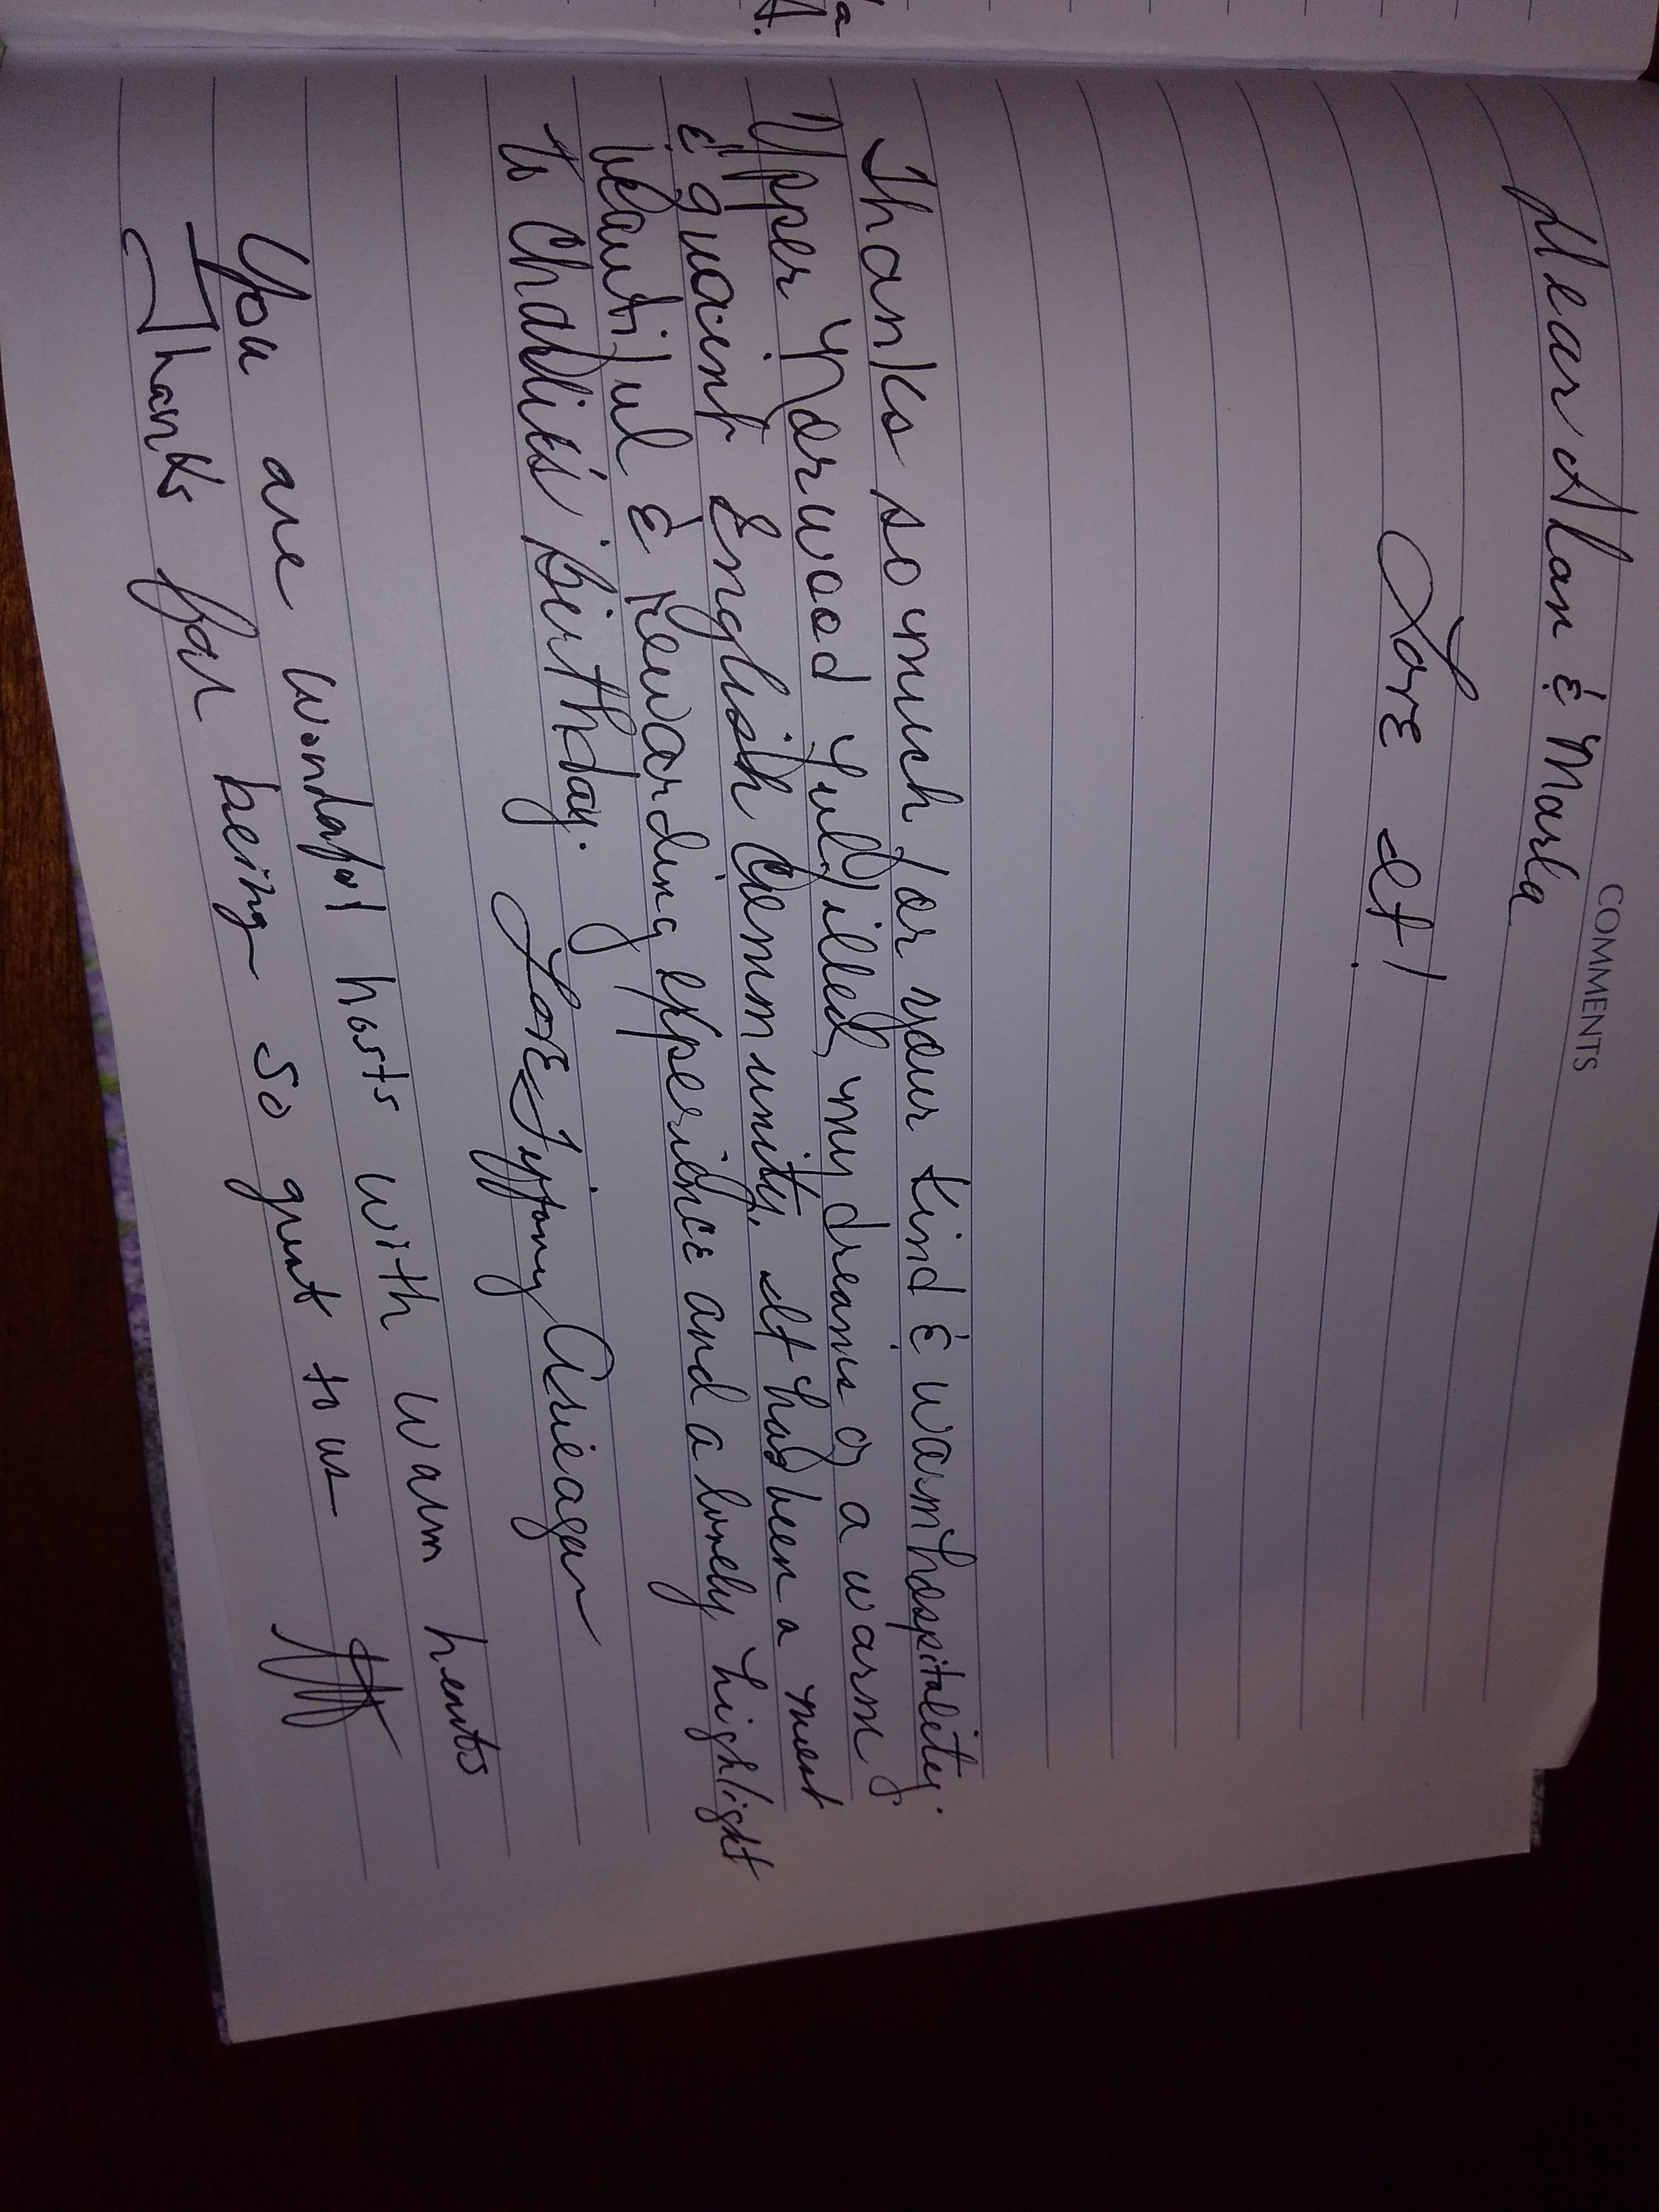 COMMENTS
Dear Alan & Marla
Love it!
Thanks so much for your kind & warm hospitality.
Upper Norwood fulfilled my dreams of a warm
& quaint English Community. It has been a most
beautiful & rewarding experience and a lovely highlight
to Charlie's birthday. Love Tiffany
You are wonderful hosts with warm hearts
Thanks for being so great to us